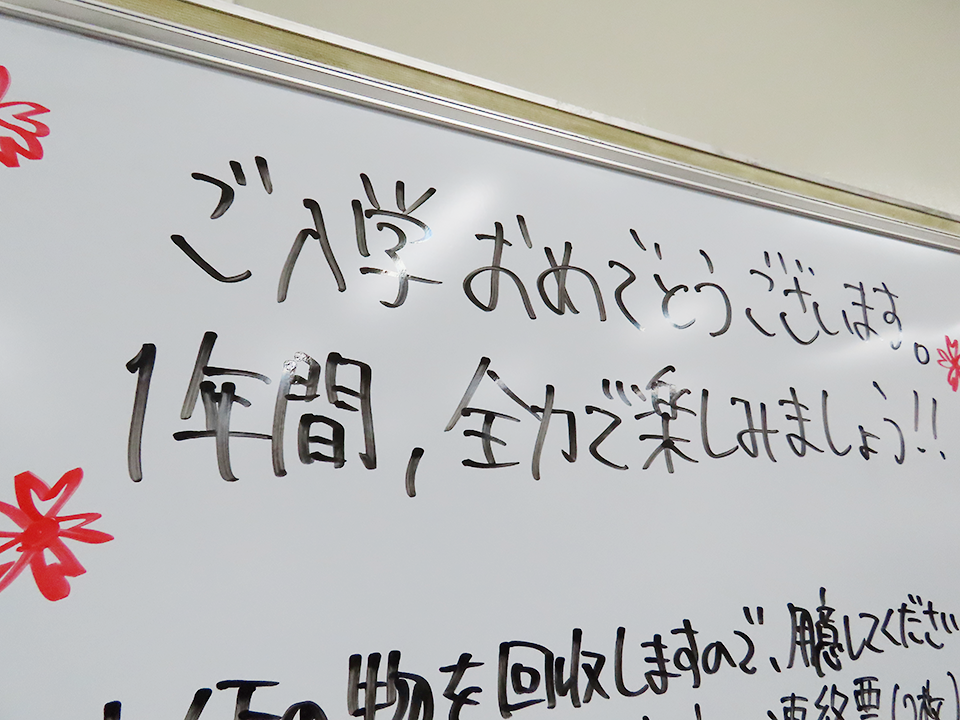 ご入学おめでとうございます。
1年間,全力で楽しみましょう!!
以下の物を回収しますので、臆してくださ
連絡票(1枚)